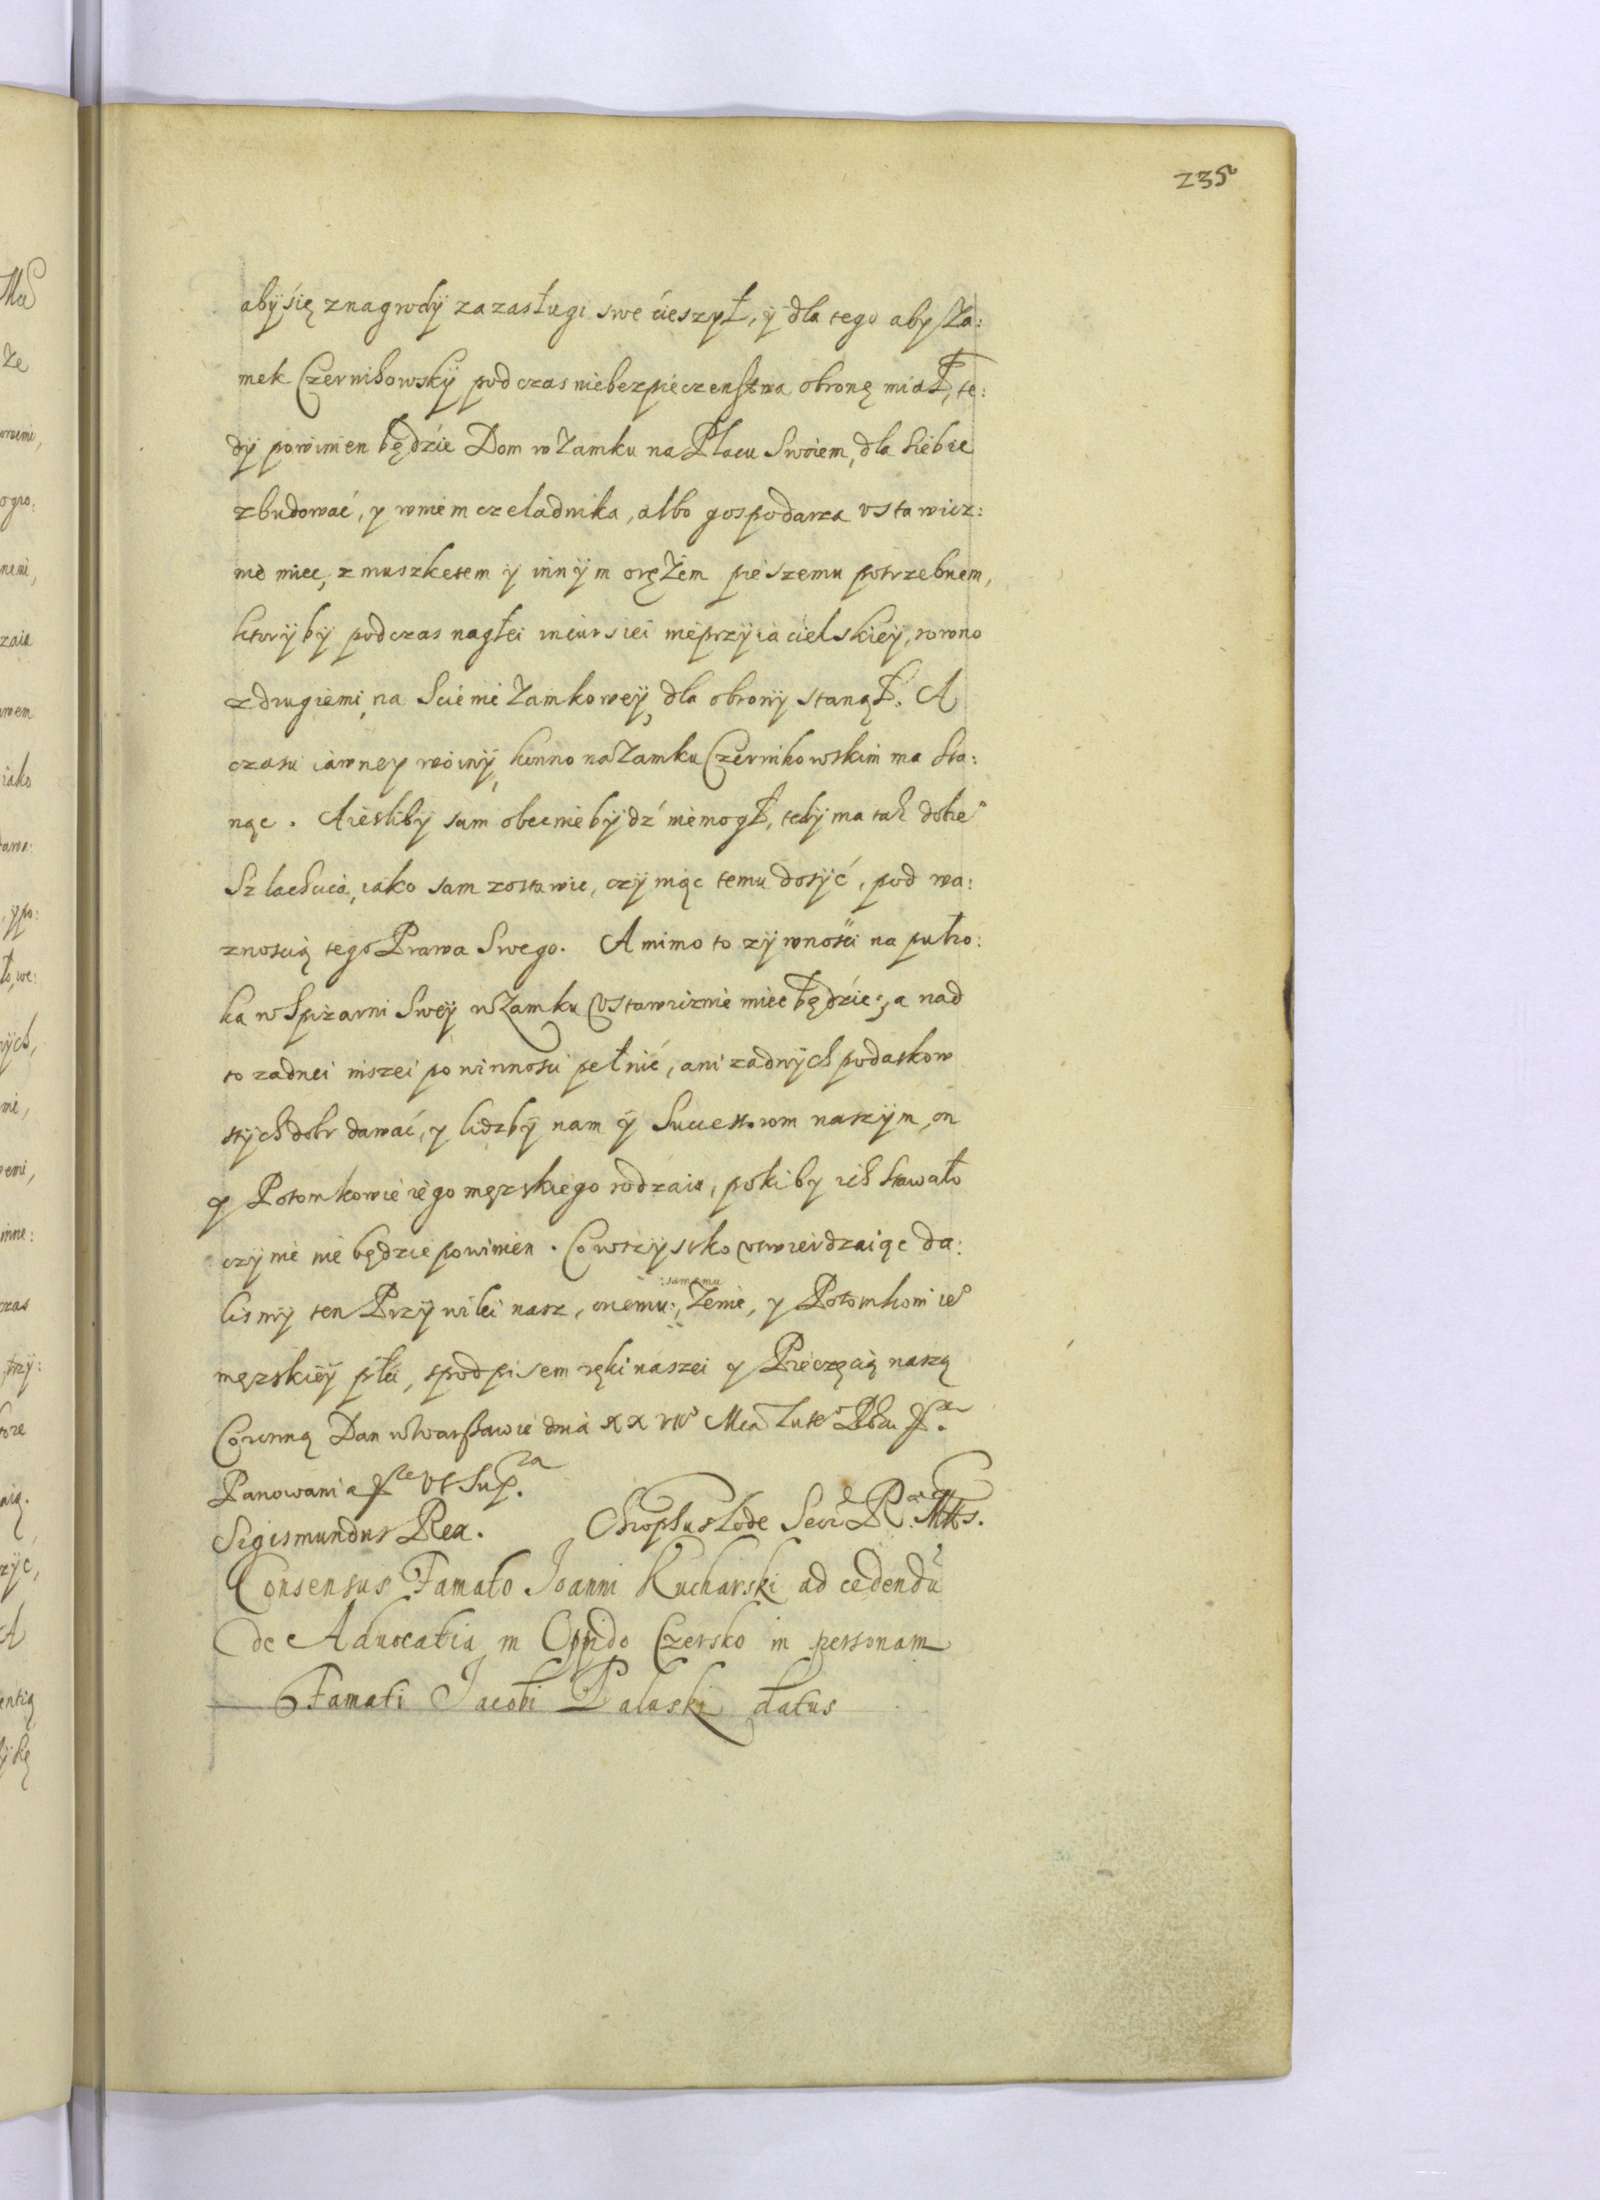 235
aby się z nagrody za zasługi swe ćieszył, ÿ dla tego aby Za:
mek Czernihowskÿ pod czas niebezpieczenstwa obronę miał, te:
dÿ powinien będźie Dom w Zamku na Placu Swoiem, dla siebie
zbudować, y w niem czeladnika, albo gospodarza ustawicz:
nie miec, z muszketem ÿ innÿm orężem pieszemu potrzebnem,
ktorÿ bÿ podczas nagłei incursiei nieprzÿiaćielskieÿ, rowno
z drugiemi na Scienie Zamkoweÿ, dla obronÿ stanął. A
czasu iawney woinÿ, konno na Zamku Czernihowskim ma sta:
nąc. A iesliby sam obecnie bÿdź nie mogł, tedÿ ma tak dobre°
Szlachcica, iako sam zostawic, czÿniąc temu dosÿć, pod wa:
znoscią tego Prawa Swego. A mimo to zÿwnosci na puł ro:
ka w Spizarni Sweÿ w Zamku Ustawicznie miec będźie; a nad
to zadnei inszei powinnosci pełnić, ani zadnÿch podatkow
z tÿch dobr dawać, y liczbÿ nam ÿ Successorom naszÿm, on
y Potomkowie iego męzskiego rodzaiu, pokiby ich stawało
czÿnic nie będzie powinien. Co wszÿstko utwierdzaiąc da:
lismÿ ten Przÿwilei nasz, onemu samemu, Zenie, y Potomkom ie°
męzskieÿ płci, z podpisem ręki naszei y Pieczęcią naszą
Coronną Dan w Warszawie dnia XXVII Mca Lute° Pbu &ce.
Panowania &ce Ut Supra
Sigismundus Rex. Chrophus Zode Secr R. Mttis.
Consensus Famato Joanni Kucharski ad cedendũ
de Aduocatia in Oppido Czersko in personam
Famati Jacobi Paluski datus